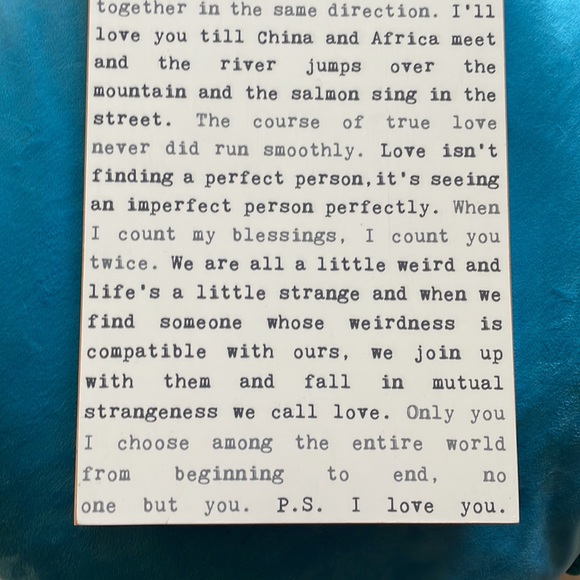 together in the same direction. I'll
love you till China and Africa meet
and the river jumps over the
mountain and the salmon sing in the
street. The course of true love
never did run smoothly. Love isn't
finding a perfect person,it's seeing
an imperfect person perfectly. When
I count my blessings, I count you
twice. We are all a little weird and
life's a little strange and when we
find someone whose weirdness is
compatible with ours, we join up
with them and fall in mutual
strangeness we call love. Only you
I choose among the entire world
from beginning to end, no
one but you. P.S. I love you.